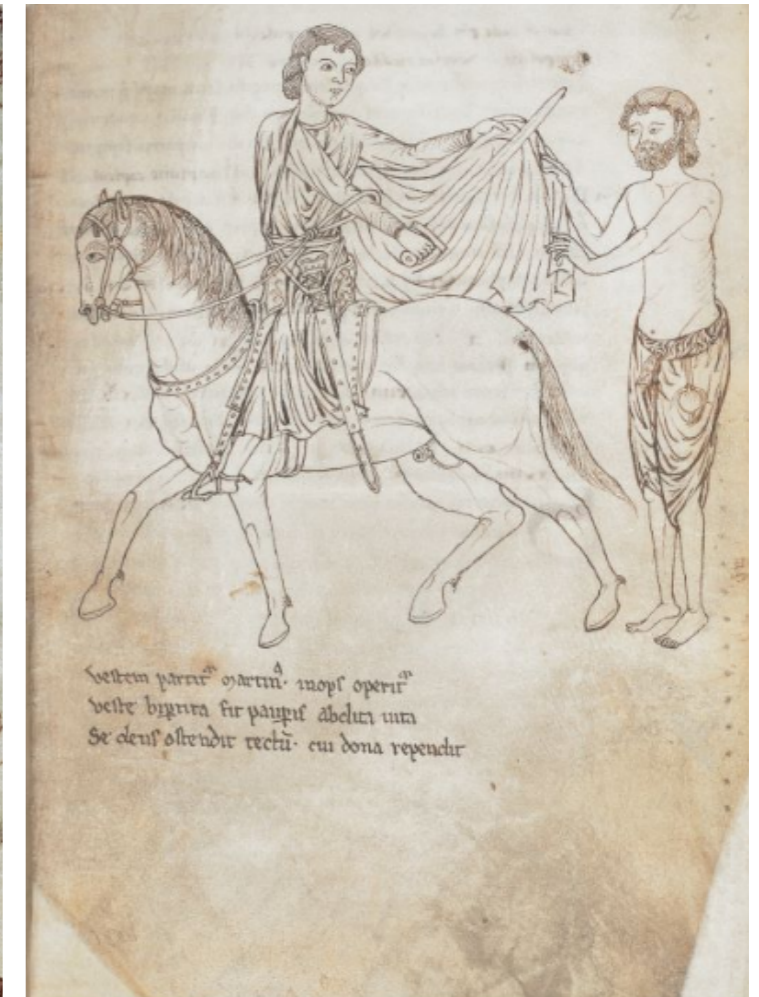 12
vestem partitᷣ martinꝰ· inops operitᷣ
veste biꝑtita fit pauꝑis abdita uita
Se deus ostendit tectū· cui dona rependit